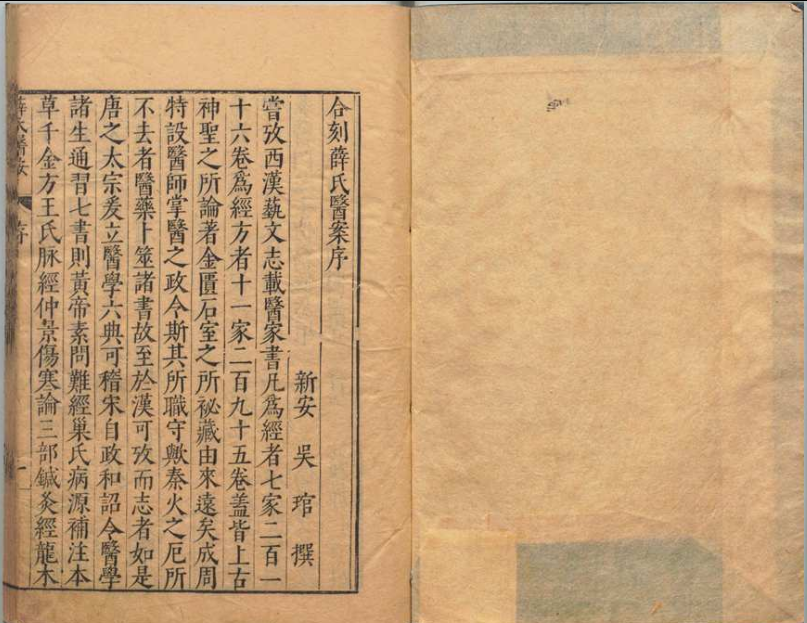 合刻薛氏醫案序
新安吳琯撰
嘗攷西漢藝文志載醫家書凡為經者七家二百一
十六卷為經方者十一家二百九十五卷蓋皆上古
神聖之所論著金匱石室之所祕藏由來遠矣成周
特設醫師掌醫之政令斯其所職守歟秦火之厄所
不去者醫藥卜筮諸書故至於漢可攷而志者如是
唐之太宗爰立醫學六典可稽宋自政和詔令醫學
諸生通習七書則黃帝素問難經巢氏病源補注本
草千金方王氏脉經仲景傷寒論三部鍼灸經龍木
薛氏醫案 序 一